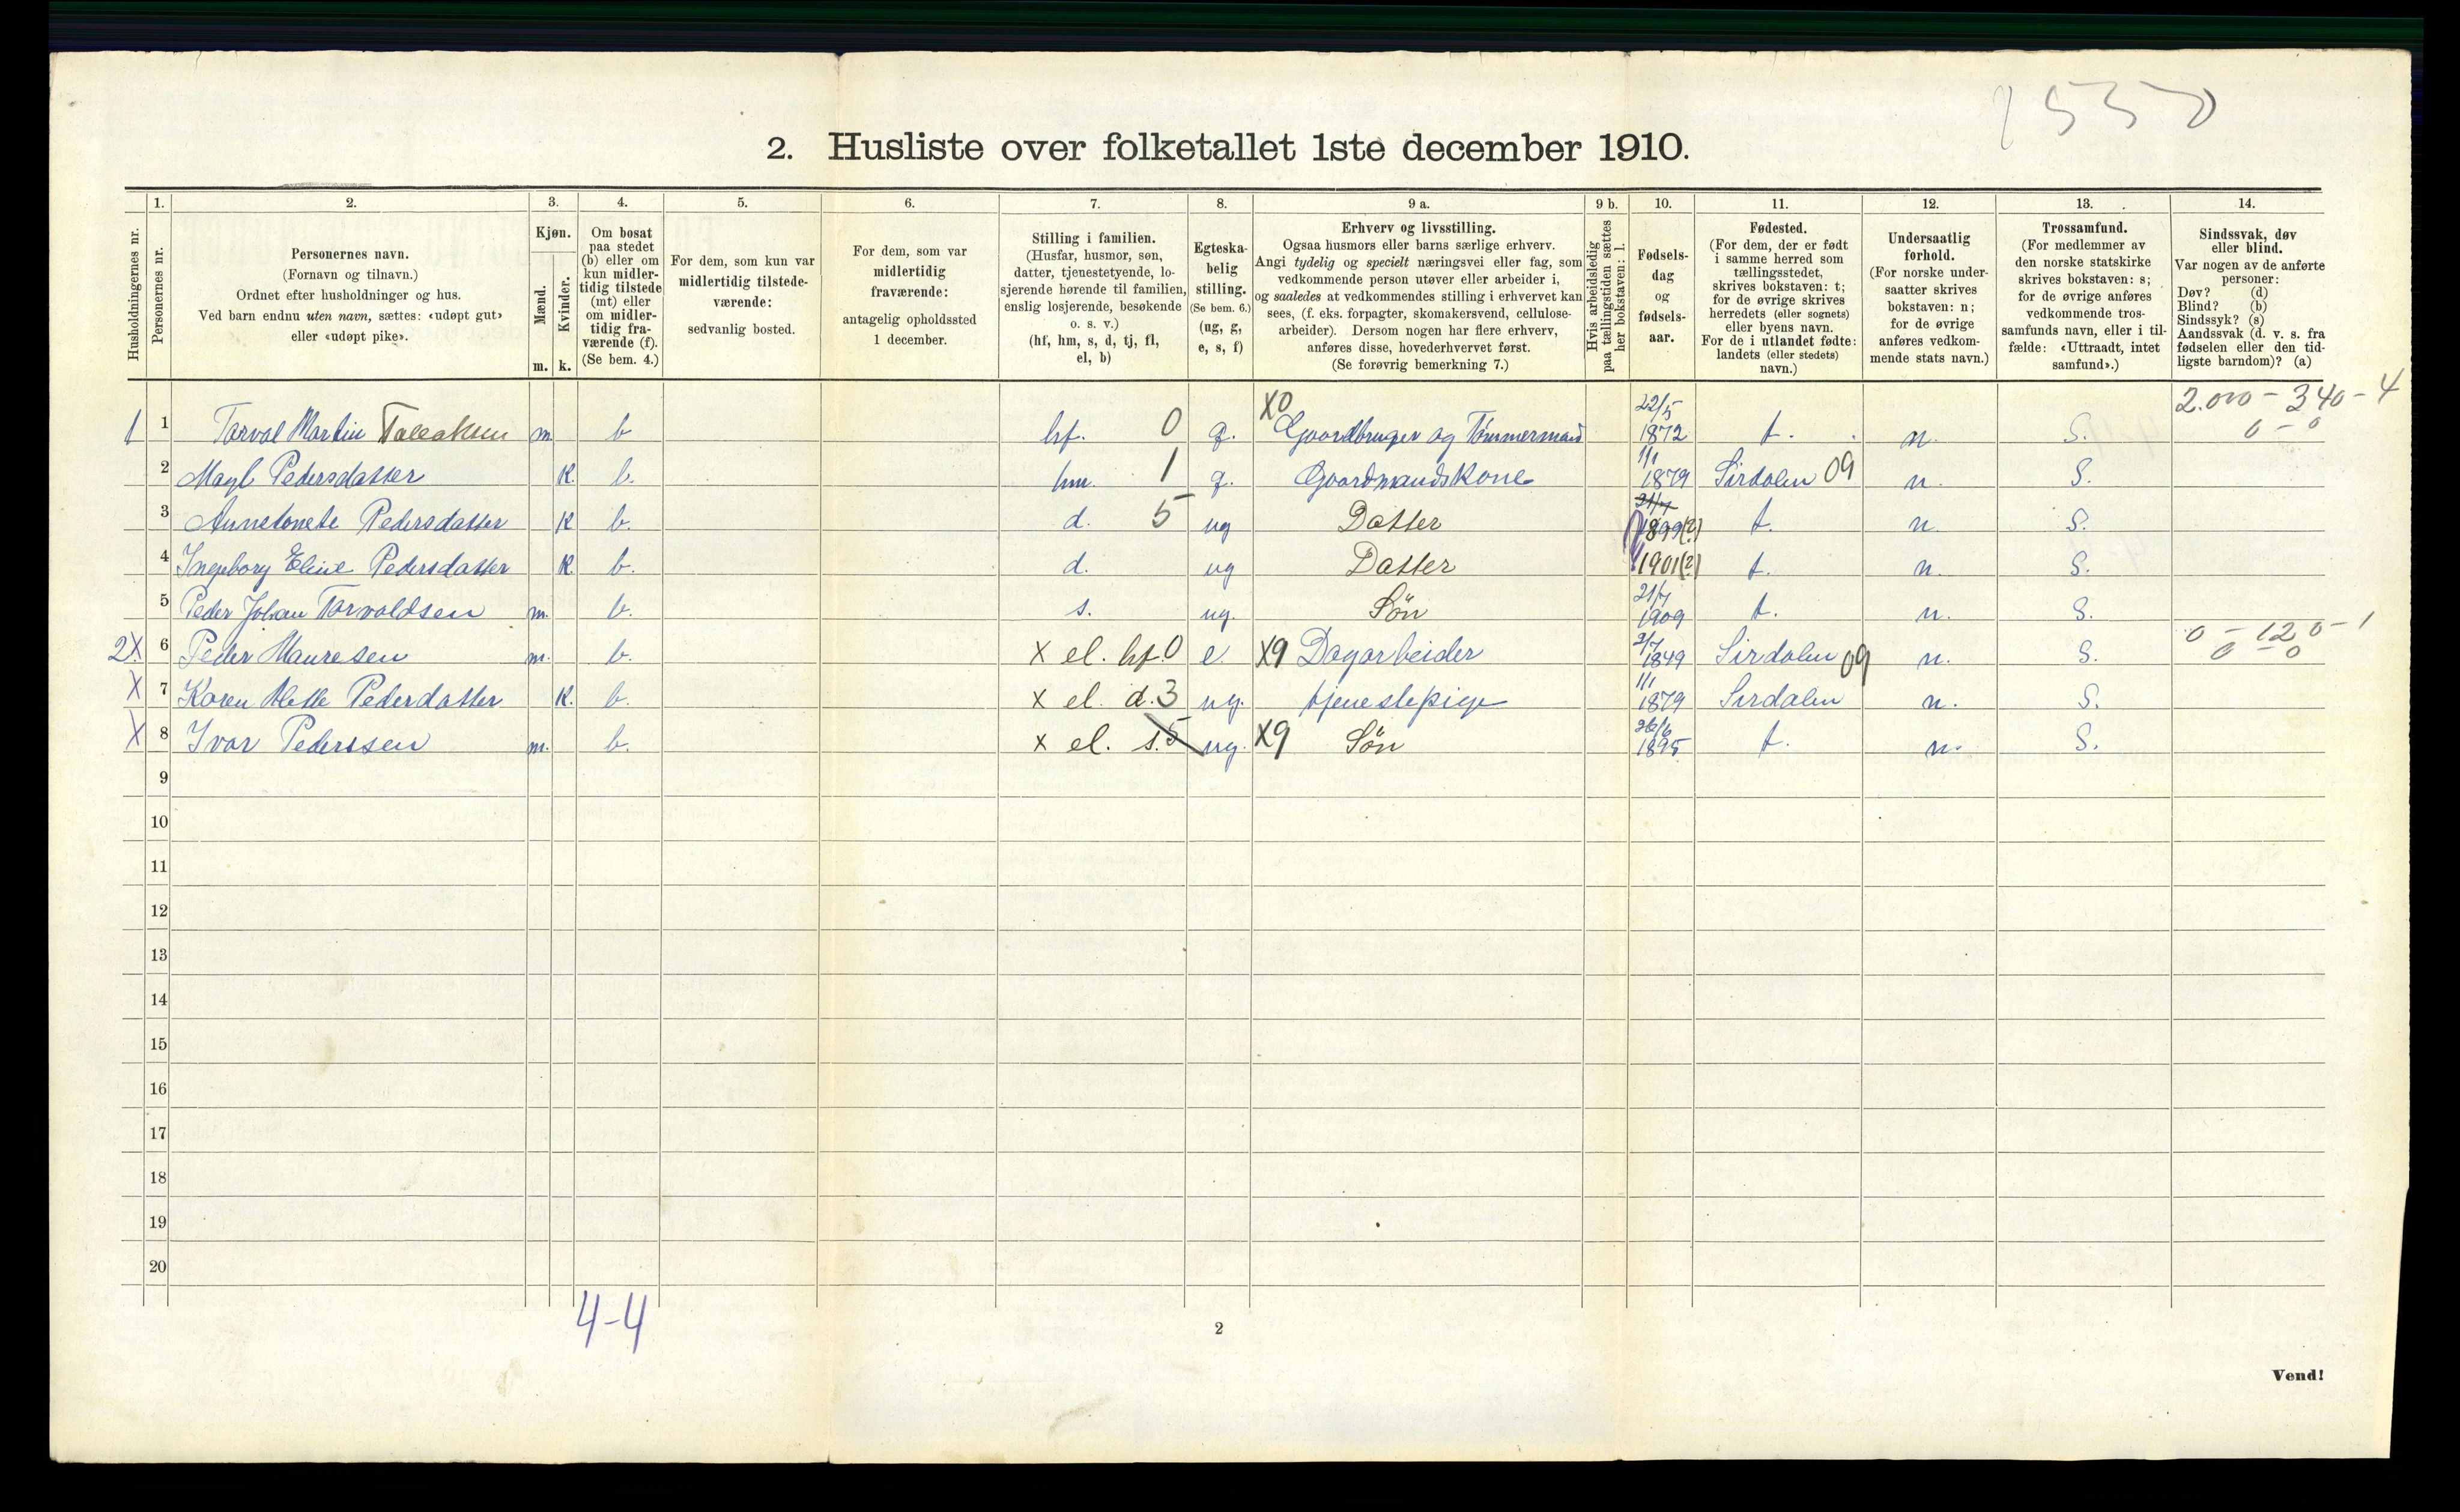 2. Husliste over folketallet 1ste december 1910.
Husholdningernes nr.
1. Personernes nr.
2. Personernes navn.
(Fornavn og tilnavn.)
Ordnet efter husholdninger og hus.
Ved barn endnu uten navn, sættes: «udøpt gut»
eller «udøpt pike».
3. Kjøn.
Mænd. m.
Kvinder. k.
4. Om bosat
paa stedet
(b) eller om
kun midler-
tidig tilstede
(mt) eller
om midler-
tidig fra-
værende (f).
(Se bem. 4.)
5. For dem, som kun var
midlertidig tilstede-
værende:
sedvanlig bosted.
6. For dem, som var
midlertidig
fraværende:
antagelig opholdssted
1 december.
7. Stilling i familien.
(Husfar, husmor, søn,
datter, tjenestetyende, lo-
sjerende hørende til familien,
enslig losjerende, besøkende
o. s. v.)
(hf, hm, s, d, tj, fl,
el, b)
8. Egteska-
belig
stilling.
(Se bem. 6.)
(ug, g,
e, s, f)
9 a. Erhverv og livsstilling.
Ogsaa husmors eller barns særlige erhverv.
Angi tydelig og specielt næringsvei eller fag, som
vedkommende person utøver eller arbeider i,
og saaledes at vedkommendes stilling i erhvervet kan
sees, (f. eks. forpagter, skomakersvend, cellulose-
arbeider). Dersom nogen har flere erhverv,
anføres disse, hovederhvervet først.
(Se forøvrig bemerkning 7.)
9 b. Hvis arbeidsledig
paa tællingstiden sættes
her bokstaven: l.
10. Fødsels-
dag
og
fødsels-
aar.
11. Fødested.
(For dem, der er født
i samme herred som
tællingsstedet,
skrives bokstaven: t;
for de øvrige skrives
herredets (eller sognets)
eller byens navn.
For de i utlandet fødte:
landets (eller stedets)
navn.)
12. Undersaatlig
forhold.
(For norske under-
saatter skrives
bokstaven: n;
for de øvrige
anføres vedkom-
mende stats navn.)
13. Trossamfund.
(For medlemmer av
den norske statskirke
skrives bokstaven: s;
for de øvrige anføres
vedkommende tros-
samfunds navn, eller i til-
fælde: «Uttraadt, intet
samfund».)
14. Sindssvak, døv
eller blind.
Var nogen av de anførte
personer:
Døv? (d)
Blind? (b)
Sindssyk? (s)
Aandssvak (d. v. s. fra
fødselen eller den tid-
ligste barndom)? (a)
2.000 - 340 - 4
0 - 0
1 1 Tarval Martin m. b hf. 0 g. X0 Gaardbruger og Tømmermand 22/5 1872 t. n. S.
2 Pedersdatter K. b. hm. 1 g. Gaardmandskone 1/1 1879 Sirdalen 09 n. S.
3 Annetonete Pedersdatter K b. d. 5 ug Datter 1899(?) t. n. S.
4 Ingeborg Eline Pedersdatter K b. d. ug Datter 1901(?) t. n. S.
5 Peder Johan Tarvaldsen m. b. s. ug. Søn 21/7 1909 t. n. S.
0 - 120 - 1
0 - 0
2X 6 Peder m. b. X el. hf. 0 e. X9 Dagarbeider 1849 Sirdalen 09 n. S.
X 7 Karen Pedersdatter K. b. X el. d. 3 ug. tjenestepige 1/1 1879 Sirdalen n. S.
X 8 Ivar Pederssen m. b. X el. s. 5 ug. X9 Søn 26/6 1895 t. n. S.
9
10
11
12
13
14
15
16
17
18
19
20
4-4
2
Vend!